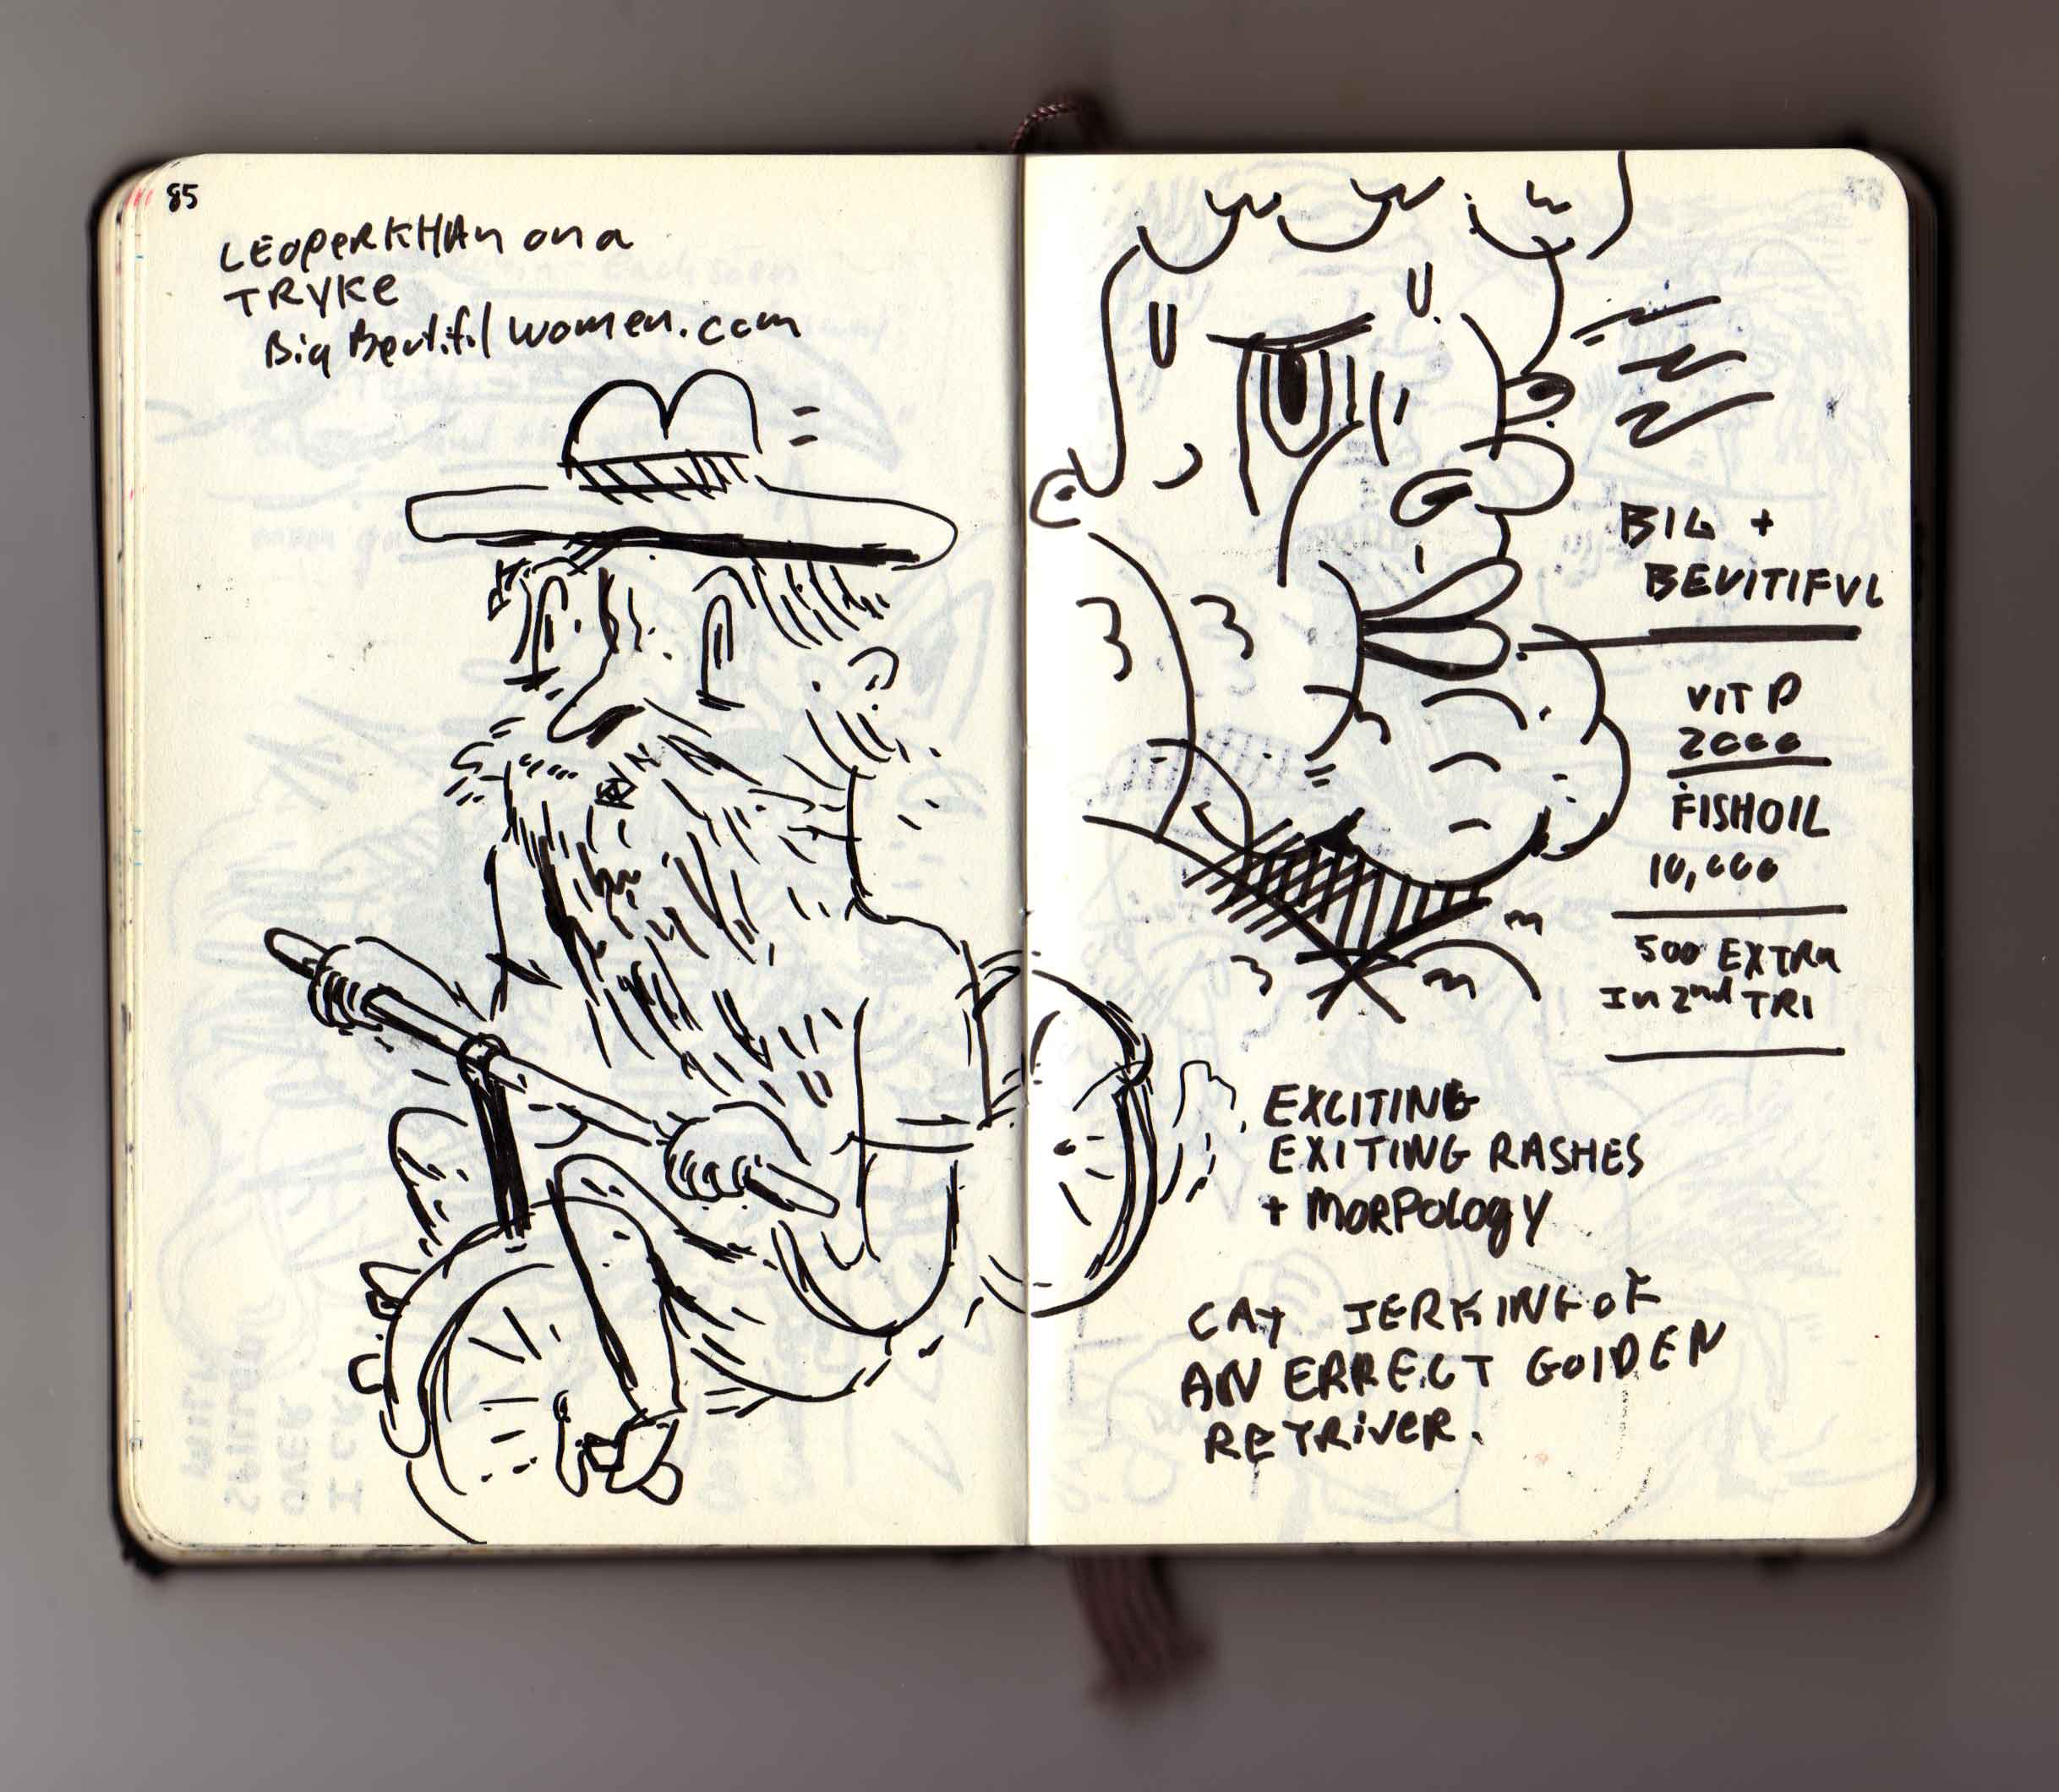 85
LEOPERKHAn on a
TRYKe
Big Beutifil women.com
BIG +
BEUITIFUL
VIT D
2000
FISHOIL
10,000
500 EXTRA
In 2nd TRI
EXCITING
EXITING RASHES
+ MORPOLOGY
CAT JERKING OF
AN ERRECT GOlDEN
RETRIVER.